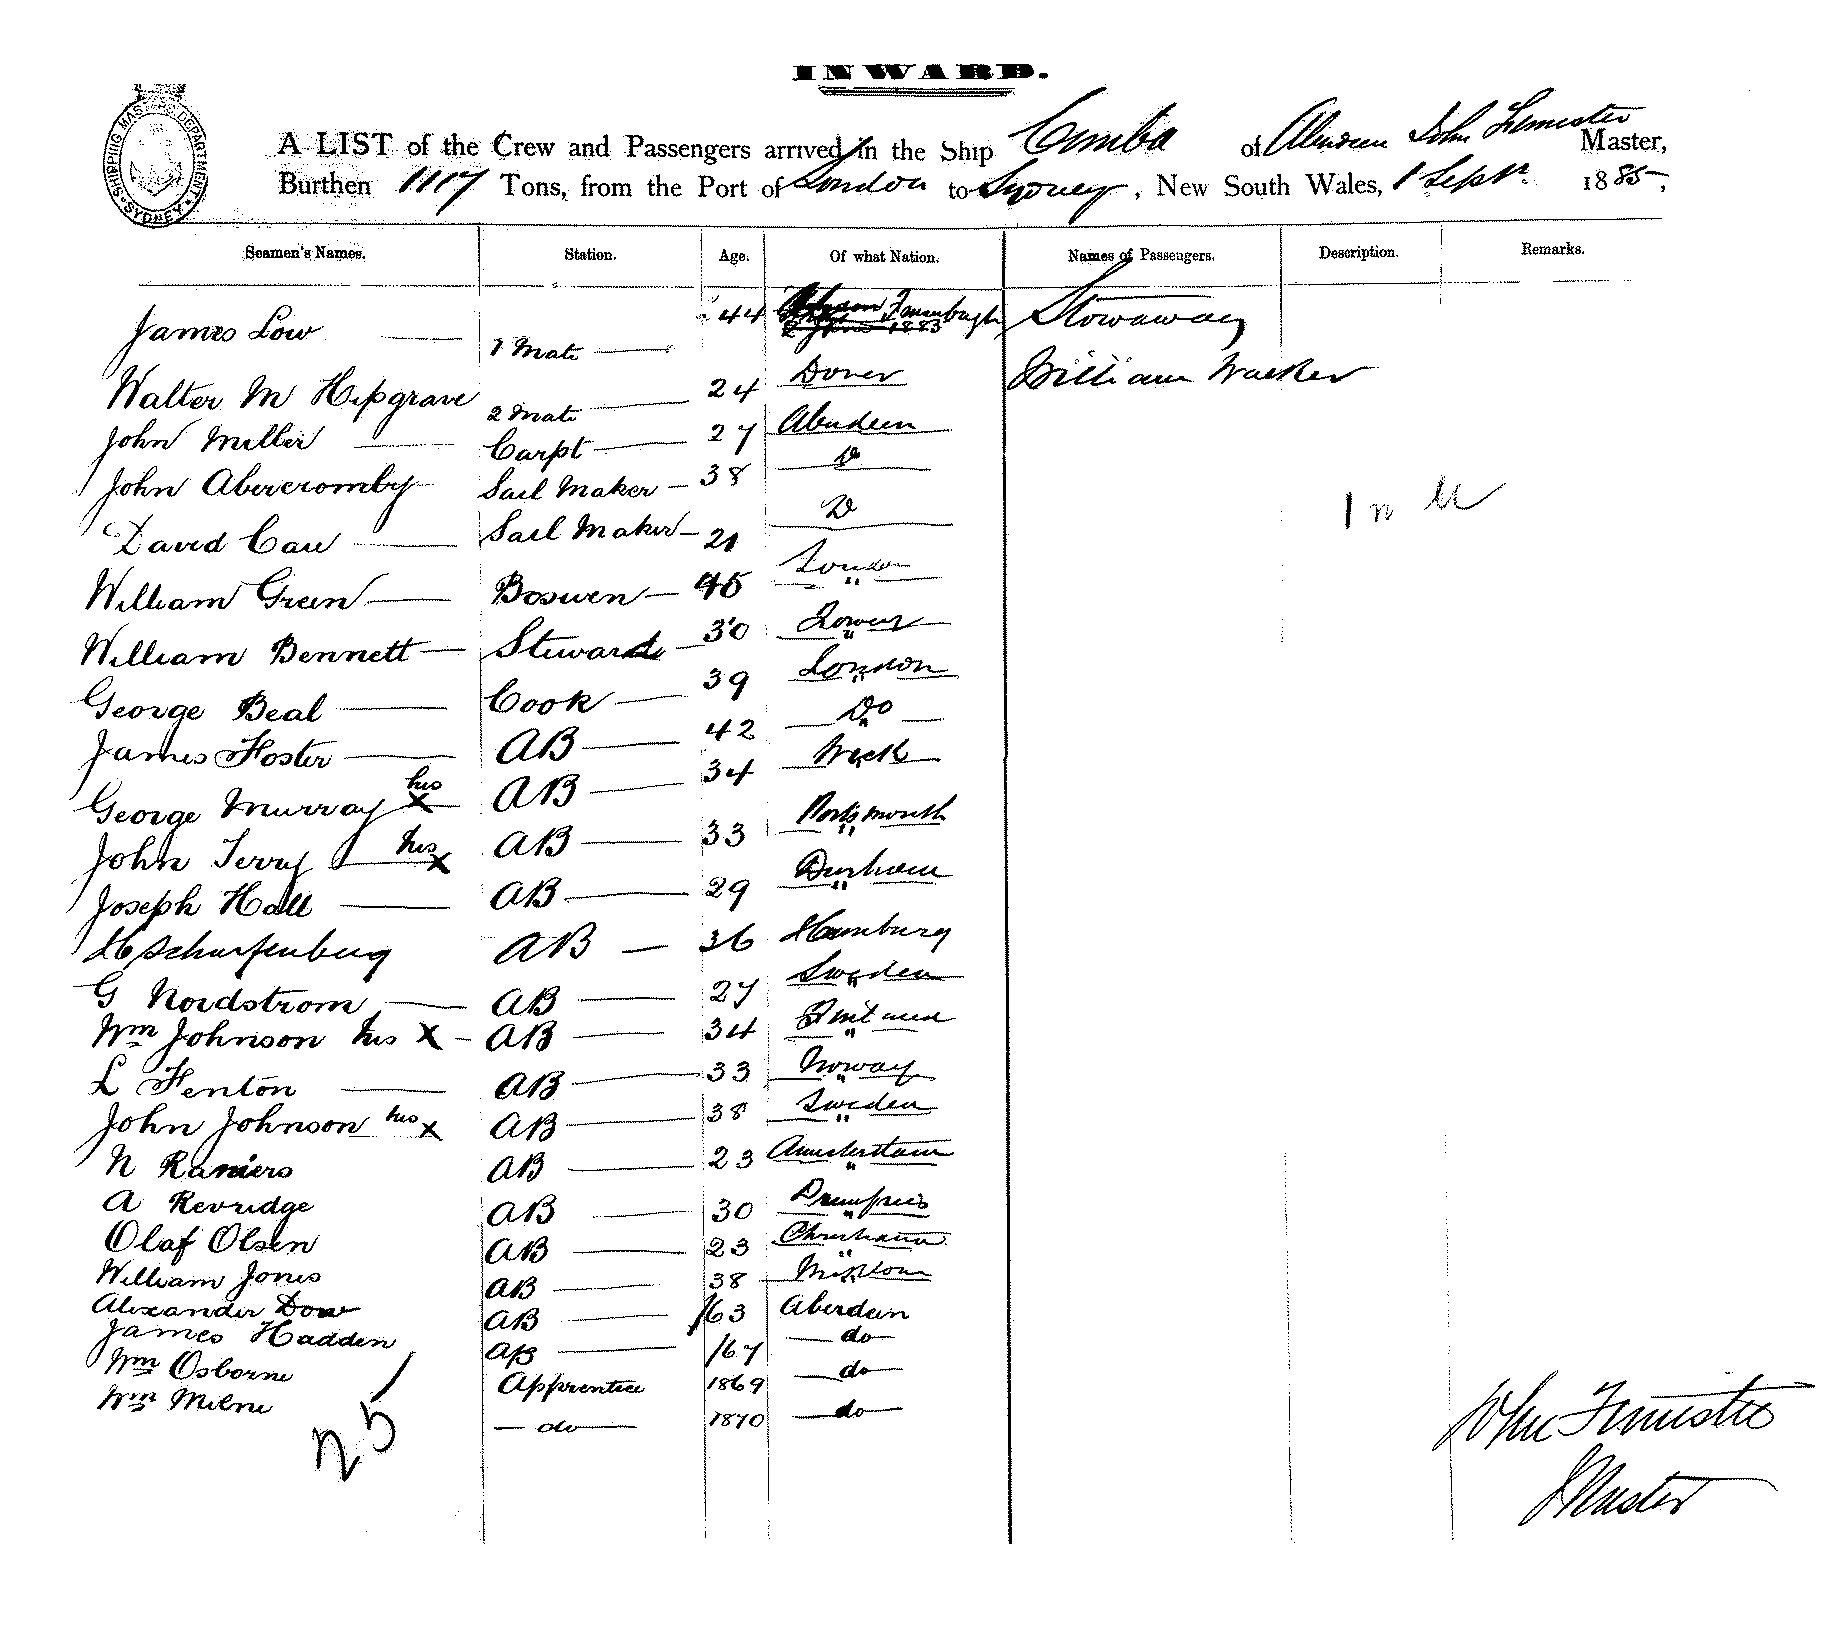 INWARD.
SHIPPING MASTER'S DEPARTMENT SYDNEY
A LIST of the Crew and Passengers arrived in the Ship Cimba of Aberdeen John Fimister Master,
Burthen 1117 Tons, from the Port of London to Sydney, New South Wales, 1 Sept 1885,
Seamen's Names. Station. Age. Of what Nation. Names of Passengers. Description. Remarks.
James Low 1 Mate 44 Stowaway
Walter M Hipgrave 2 Mate 24 Dover William Walker
John Miller Carpt 27 Aberdeen
John Abercromby Sail Maker 38 D
David Caw Sail Maker 21 D
William Green Boswen 45 London
William Bennett Steward 30
George Beal Cook 39 London
James Foster AB 42 Do
George Murray his X AB 34 Wick
John Terry his X AB 33 Portsmouth
Joseph Hall AB 29 Durham
H Scharfenberg AB 36 Hamburg
G Nordstrom AB 27 Sweden
Wm Johnson his X AB 34
L Fenton AB 33 Norway
John Johnson his X AB 38 Sweden
N Raniers AB 23 Amsterdam
A Revridge AB 30 Dumfries
Olaf Olsen AB 23 Christiana
William Jones AB 38
Alexander Dow AB /63 Aberdeen
James Hadden AB /67 do
Wm Osborne Apprentice 1869 do
Wm Milne do 1870 do
25
John Fimister
Master